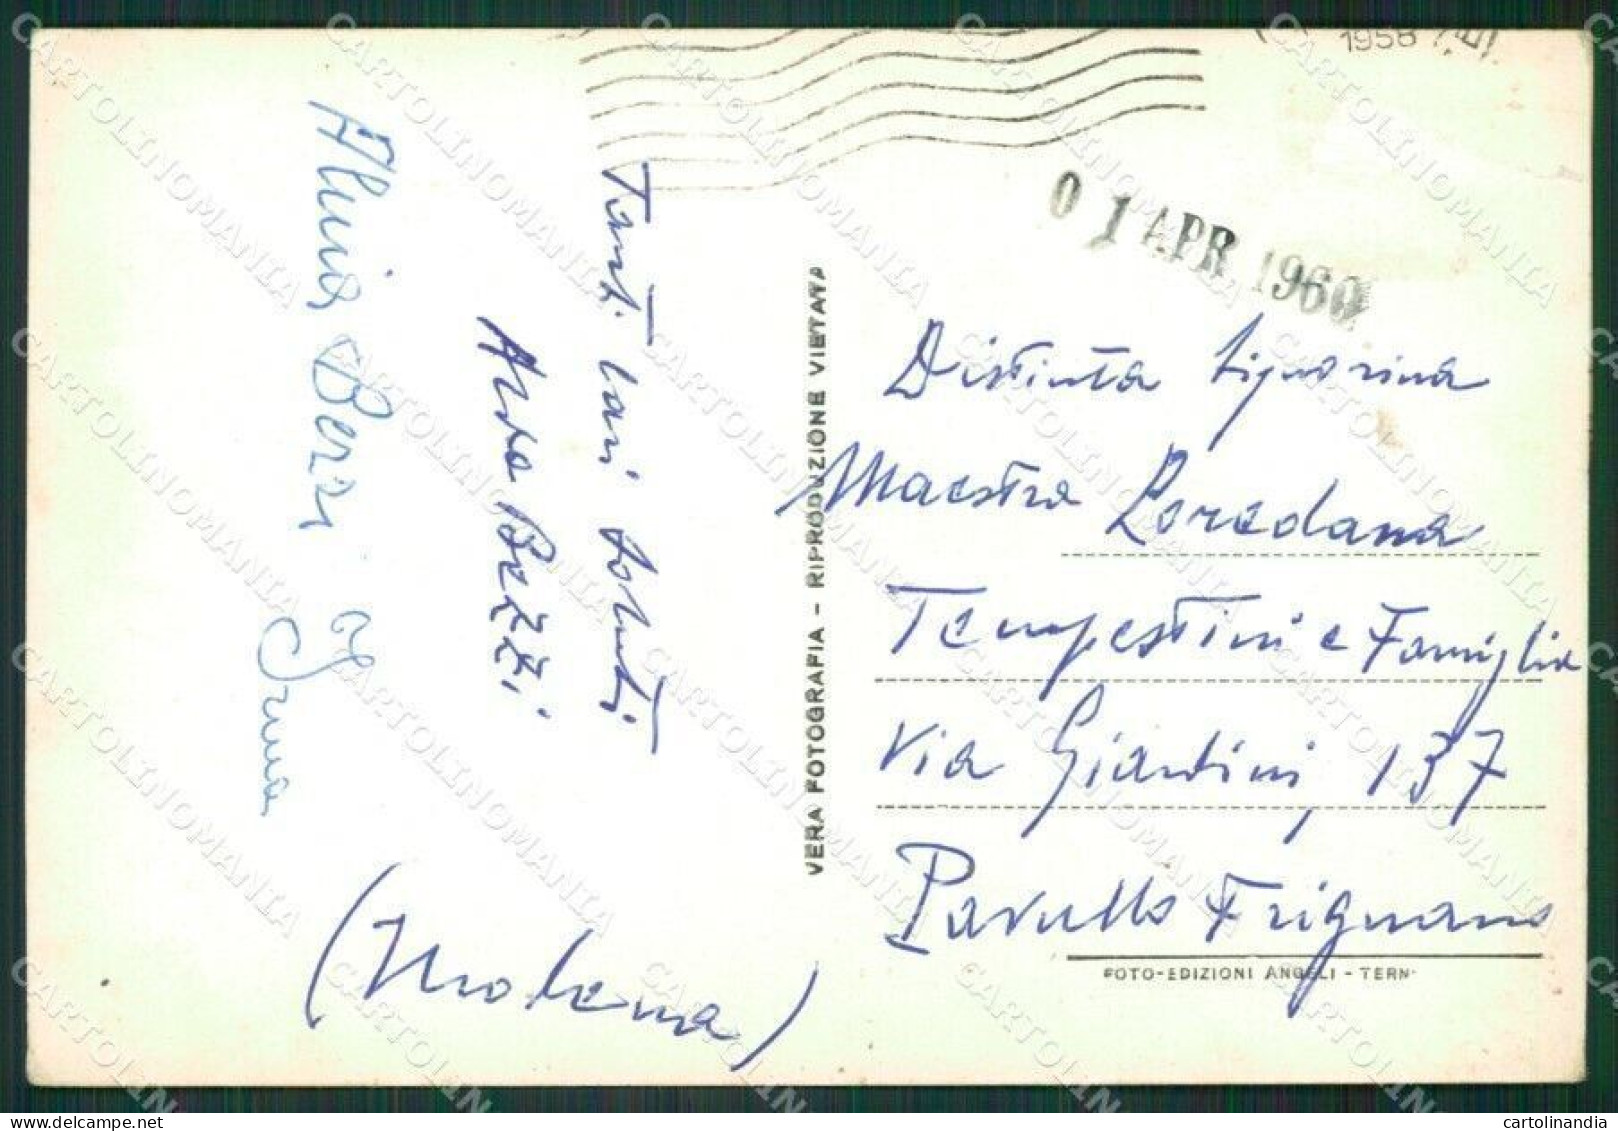 1958
01 APR 1960
Tanti cari saluti
Bezzi
Irma
(Modena)
VERA FOTOGRAFIA - RIPRODUZIONE VIETATA
Distinta Signorina
Maestra Loredana
Tempestini e Famiglia
Via Giardini, 137
Pavullo Frignano
FOTO-EDIZIONI ANGELI - TERNI
CARTOLINOMANIA
cartolinandia